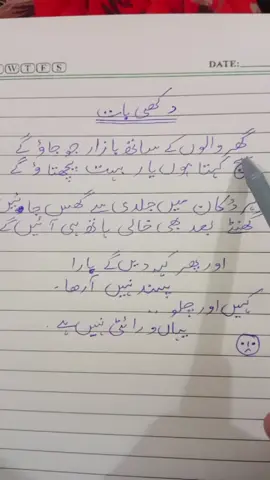 DATE:
دکھی بات
گھر والوں کے ساتھ بازار جو جاؤ گے
سچ کہتا ہوں یار بہت پچھتاؤ گے
ہر دکان میں جلدی سے گھس جائیں
گھنٹے بعد بھی خالی ہاتھ ہی آئیں گے
اور پھر کہہ دیں گے یارا
پسند نہیں آرہا۔
کہیں اور چلو ..
یہاں ورائٹی نہیں ہے۔